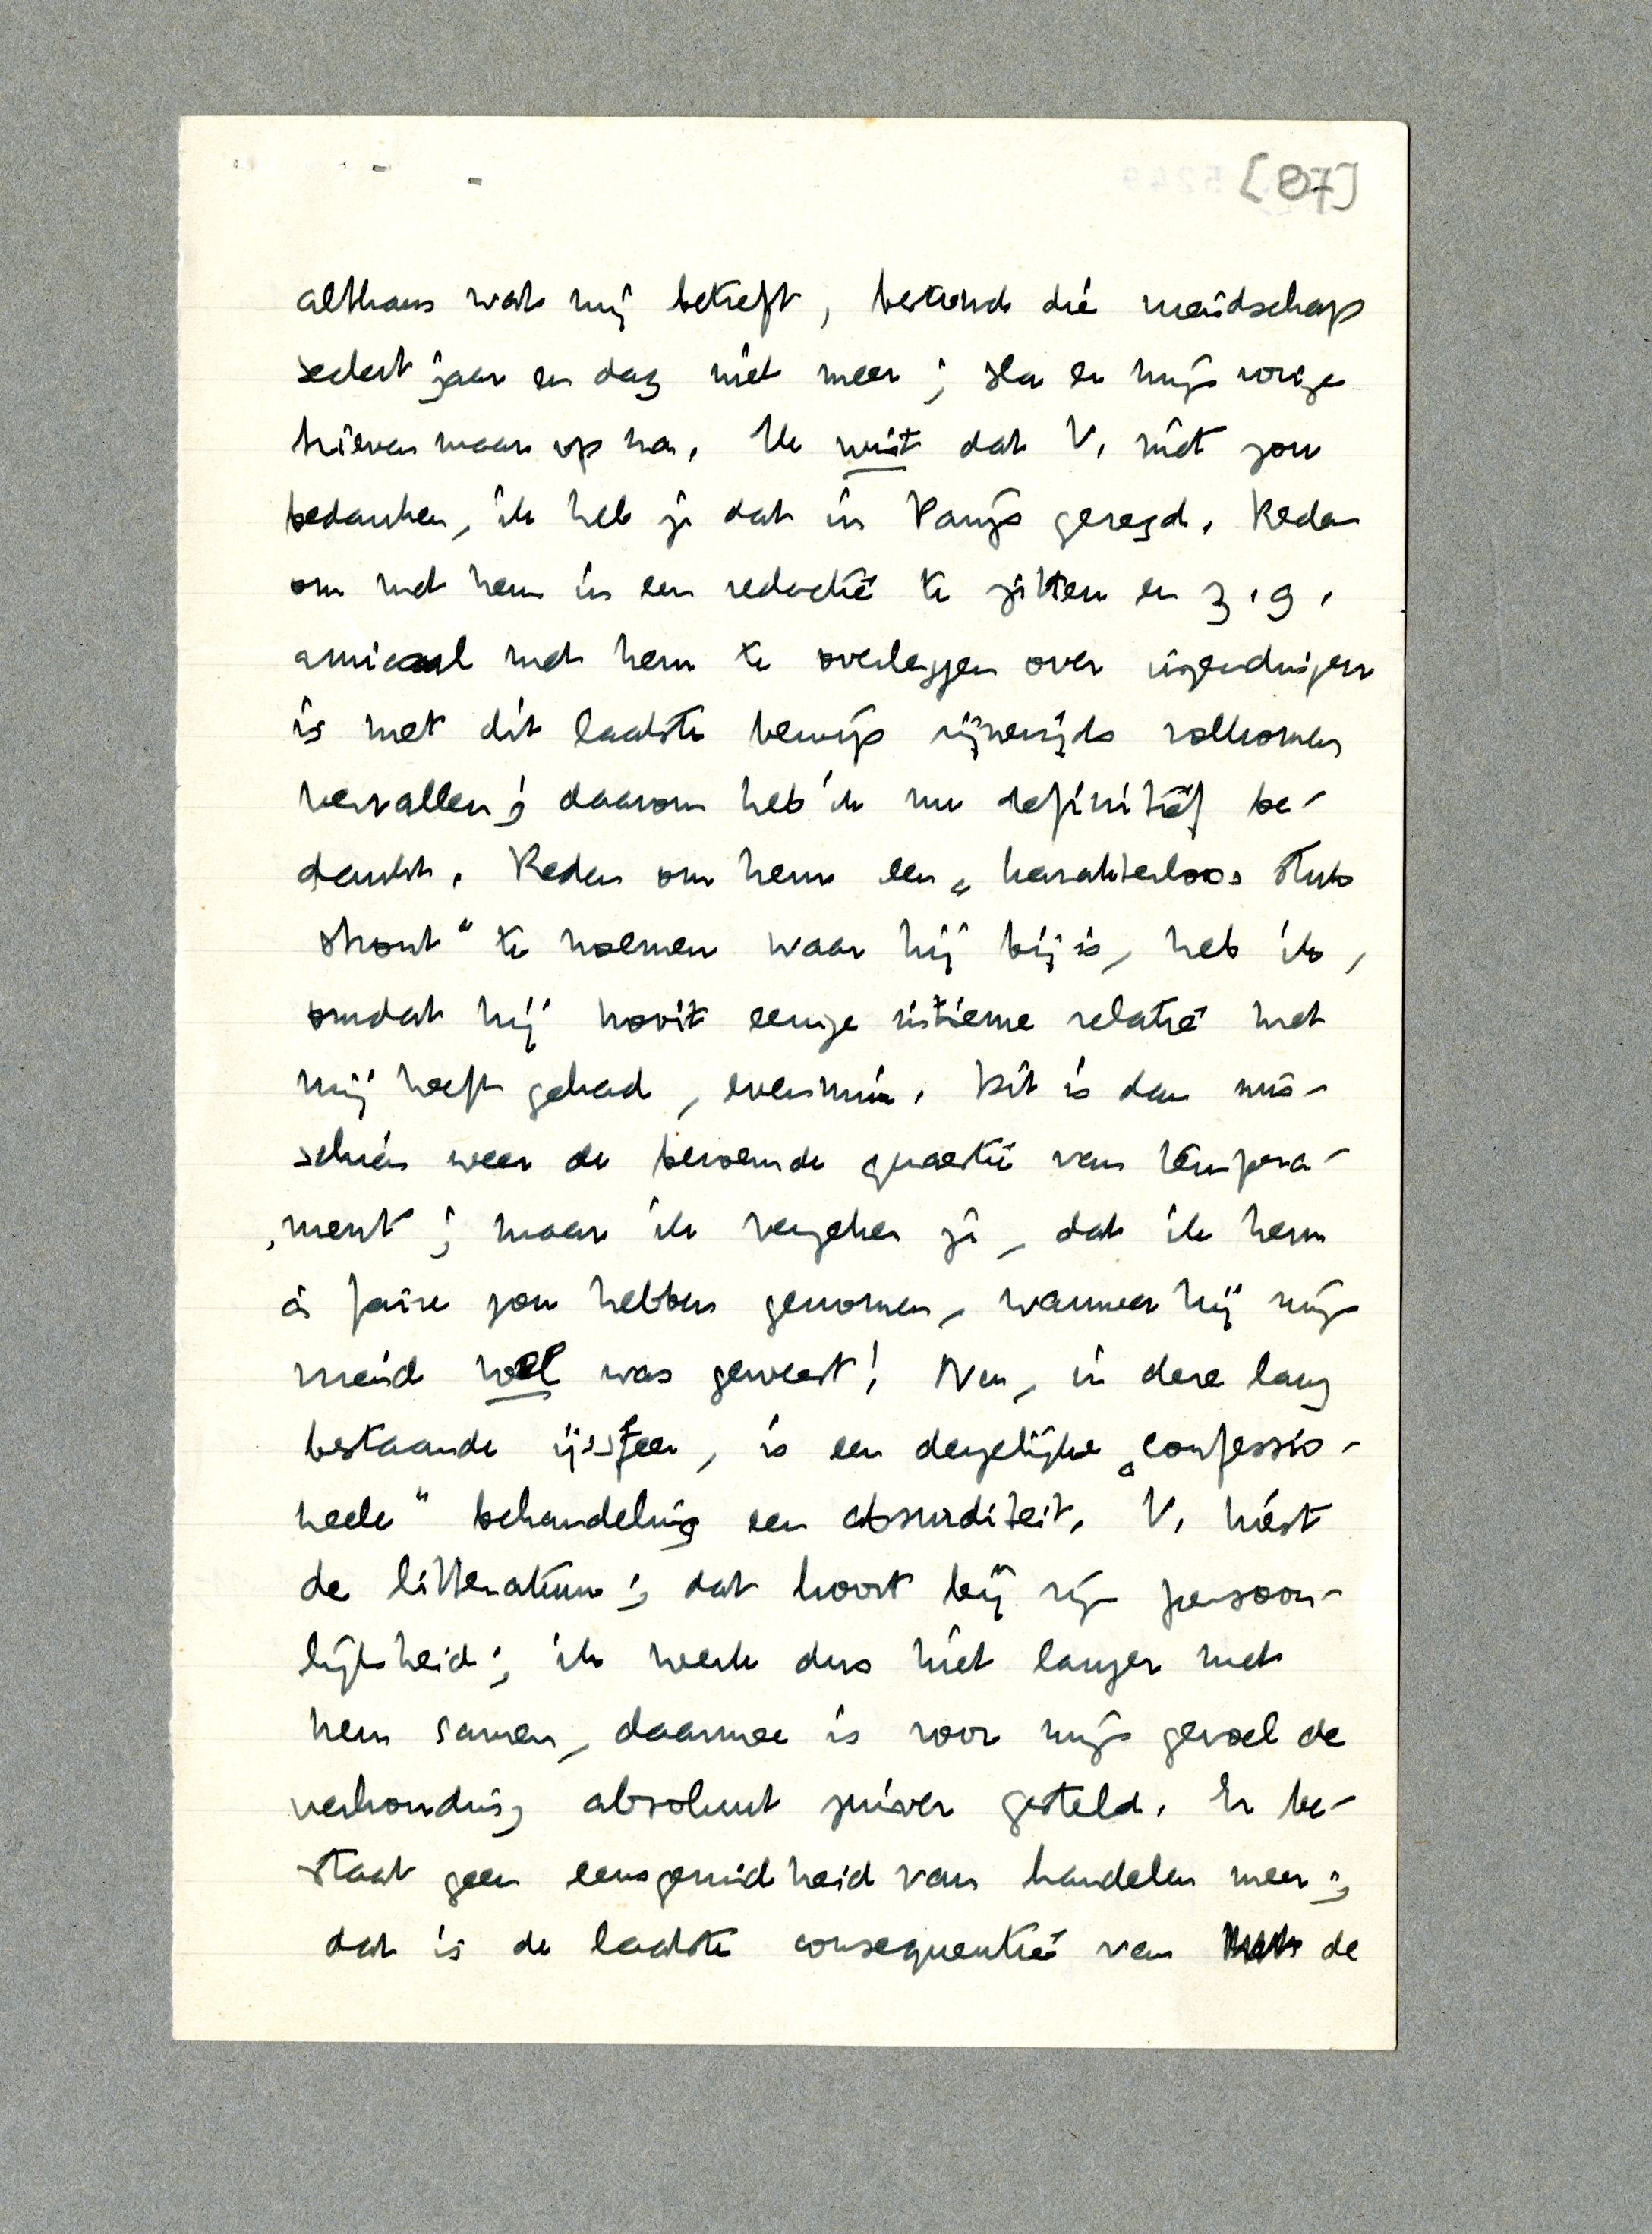 [87]
althans wat mij betreft, bestond die vriendschap
sedert jaar en dag niet meer; sla er mijn vorige
brieven maar op na. Ik wist dat V. niet zou
bedanken, ik heb je dat in Parijs gezegd. Reden
om met hem in een redactie te zitten en z.g.
amicaal met hem te overleggen over uitzendingen
is met dit laatste bewijs zijnerzijds volkomen
vervallen; daarom heb ik nu definitief be-
dankt. Reden om hem een „karakterloos stuk
stront" te noemen waar hij bij is, heb ik,
omdat hij nooit eenige intieme relatie met
mij heeft gehad, evenmin. Dit is dan mis-
schien weer de beroemde quaestie van tempera-
ment; maar ik verzeker je, dat ik hem
à faire zou hebben genomen, wanneer hij mijn
vriend wel was geweest! Nu, in deze lang
bestaande ijssfeer, is een dergelijke „confessio-
neele" behandeling een absurditeit. V. kiest
de litteratuur; dat hoort bij zijn persoon-
lijkheid; ik werk dus niet langer met
hem samen, daarmee is voor mijn gevoel de
verhouding absoluut zuiver gesteld. Er be-
staat geen eensgezindheid van handelen meer;
dat is de laatste consequentie van de